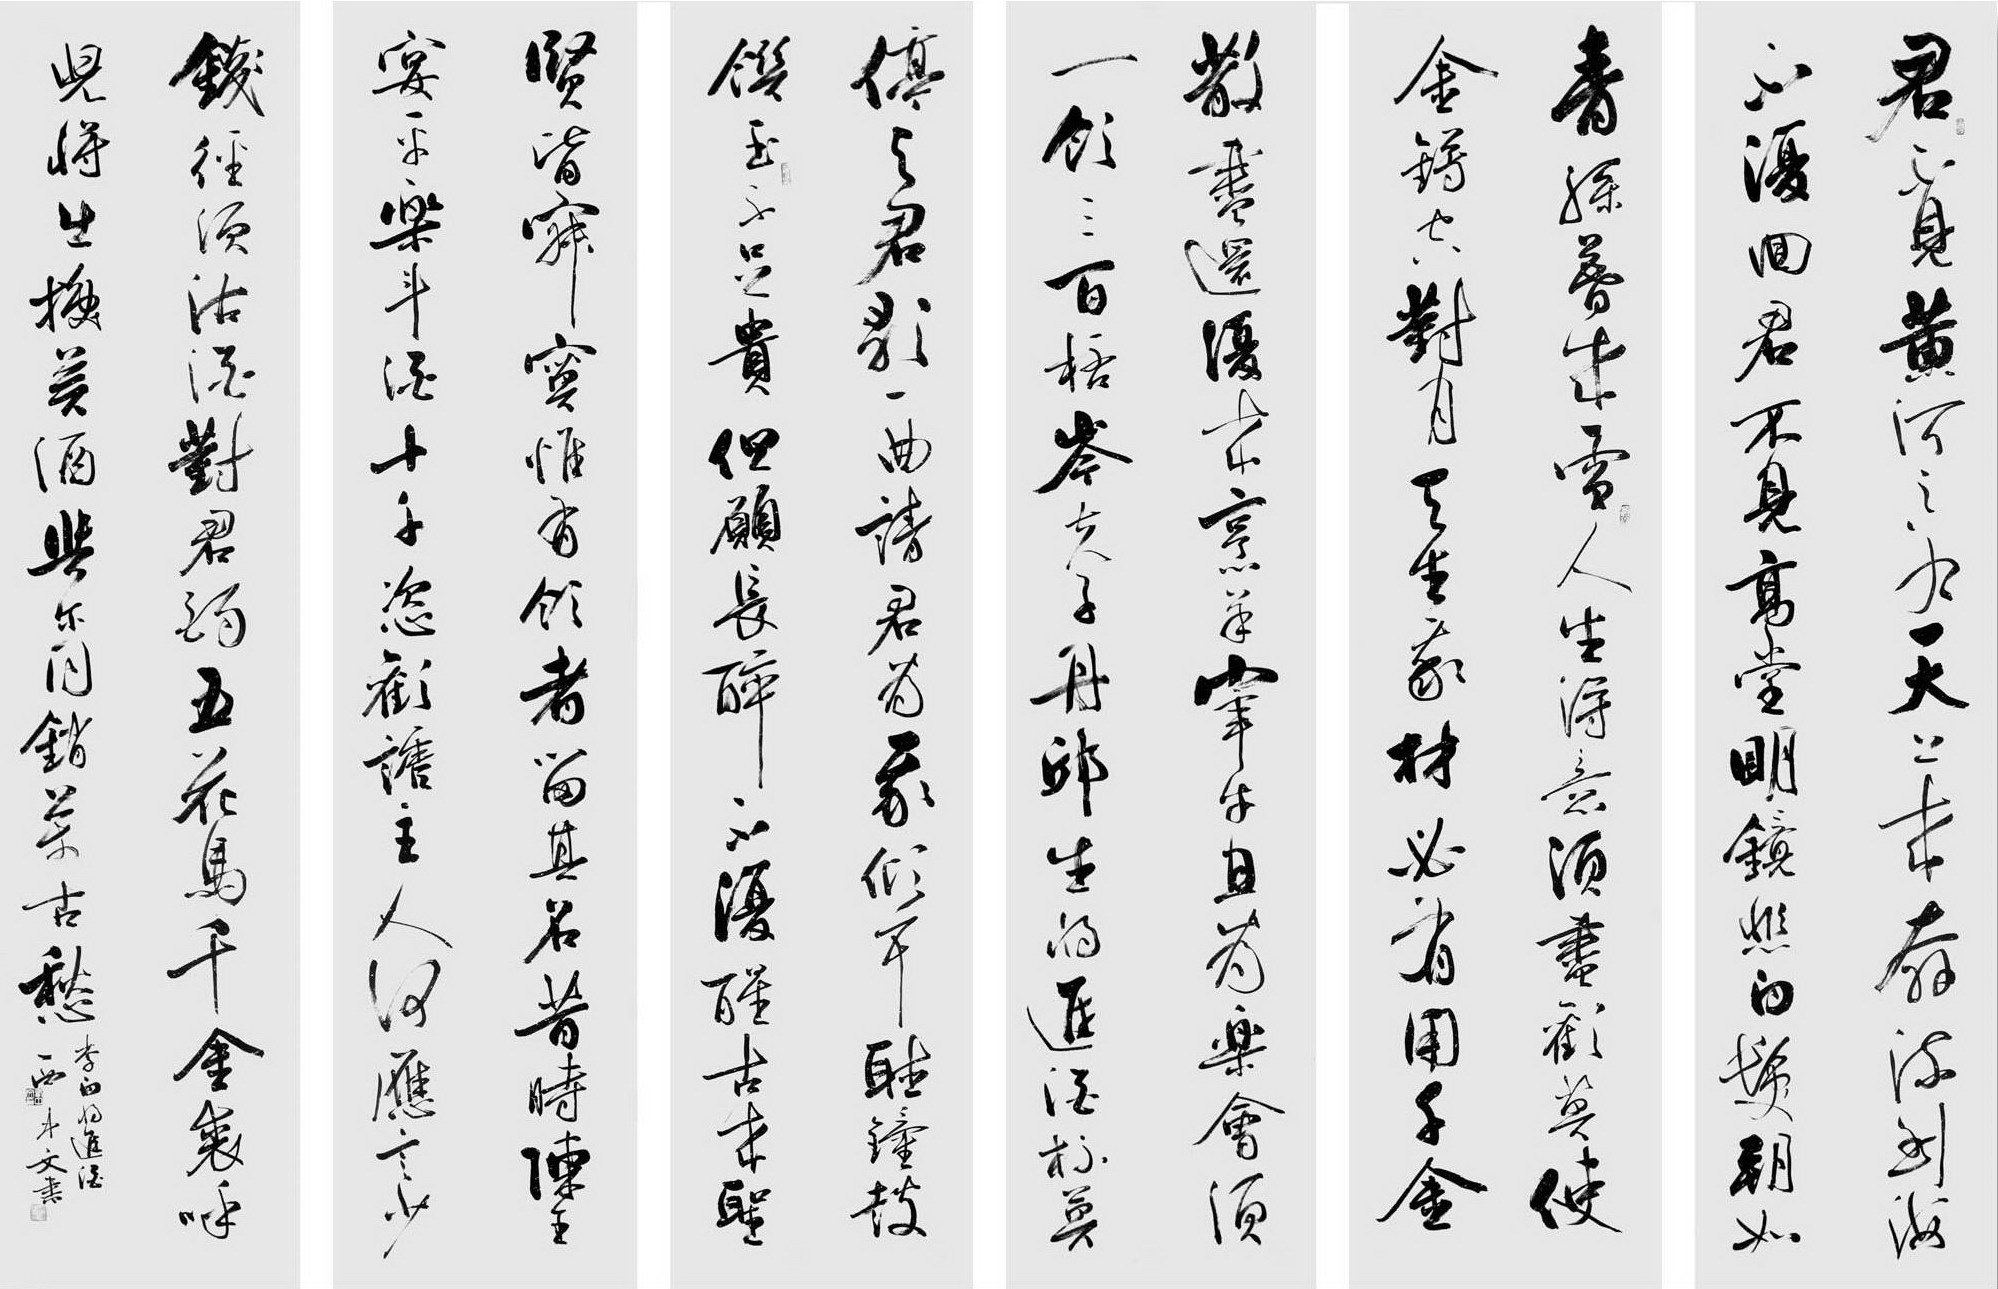 君不見黃河之水天上來奔流到海
不復回君不見高堂明鏡悲白髮朝如
青絲暮成雪人生得意須盡歡莫使
金罇空對月天生我材必有用千金
散盡還復來烹羊宰牛且為樂會須
一飲三百杯岑夫子丹邱生將進酒杯莫
停與君歌一曲請君為我傾耳聽鐘鼓
饌玉不足貴但願長醉不復醒古來聖
賢皆寂寞惟有飲者留其名昔時陳王
宴平樂斗酒十千恣歡謔主人何應言少
錢徑須沽酒對君酌五花馬千金裘呼
兒將出換美酒與爾同銷萬古愁
李白將進酒
文書